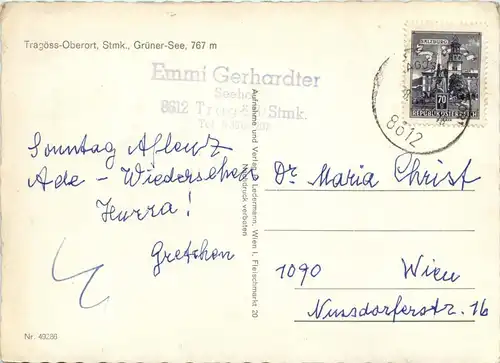 Tragöss-Oberort, Stmk., Grüner-See, 767 m
Emmi Gerhardter
8612 Stmk.
Tel.
SALZBURG
70
REPUBLIK ÖSTERREICH
8612
Sonntag Aflenz
Ade - Wiedersehen
Hurra!
Gretchen
Aufnahme und Verlag P. Ledermann, Wien I, Fleischmarkt 20
Nachdruck verboten
Dr. Maria Christ
1090 Wien
Nussdorferstr. 16
Nr. 49286